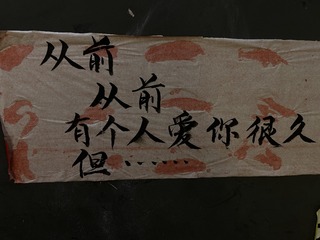 从前
从前
有个人爱你很久
但······